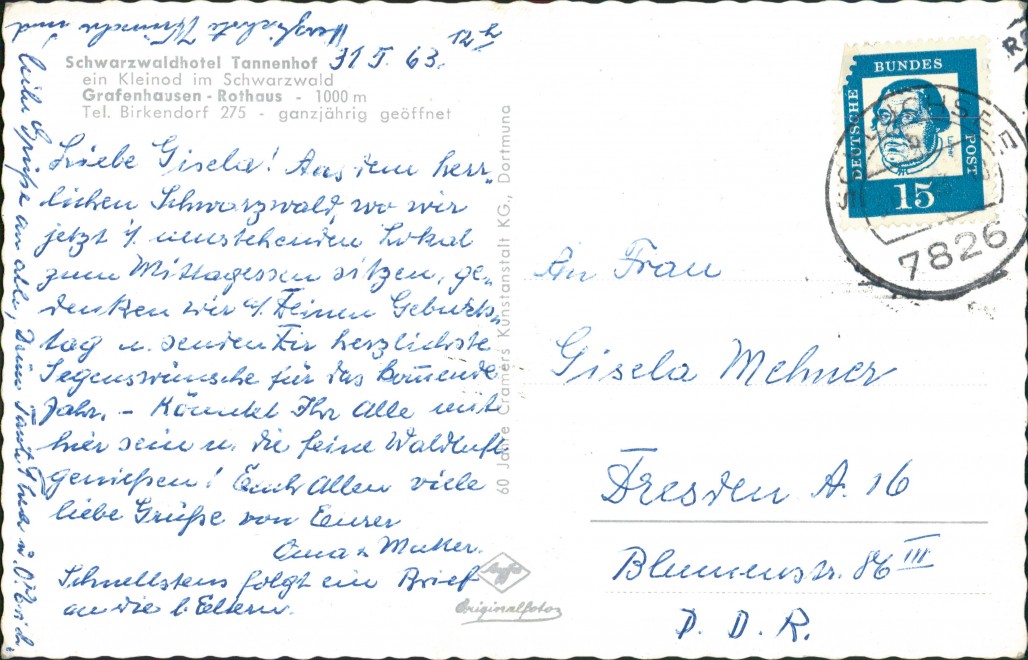 Schwarzwaldhotel Tannenhof
ein Kleinod im Schwarzwald
Grafenhausen - Rothaus - 1000 m
Tel. Birkendorf 275 - ganzjährig geöffnet
31. 5. 63.
Liebe Gisela! Aus dem herr-
lichen Schwarzwald, wo wir
jetzt i/ nebenstehenden Lokal
zum Mittagessen sitzen, ge-
denken wir a/ Deinen Geburts-
tag u. senden Dir herzlichste
Segenswünsche für das kommende
Jahr. - Könntet Ihr alle mit
hier sein u. die feine Waldluft
genießen! Euch Allen viele
liebe Grüße von Eurer
Oma u Mutter.
Schnellstens folgt ein Brief
an die l. Eltern.
Herzlichste Wünsche und
liebe Grüße an alle, Deine Tante
60 Jahre Cramers Kunstanstalt KG., Dortmund
Agfa
Originalfoto
DEUTSCHE
BUNDES
POST
15
SCHLUCHSEE
7826
An Frau
Gisela Mehner
Dresden A. 16
Blumenstr. 86 III
D. D. R.